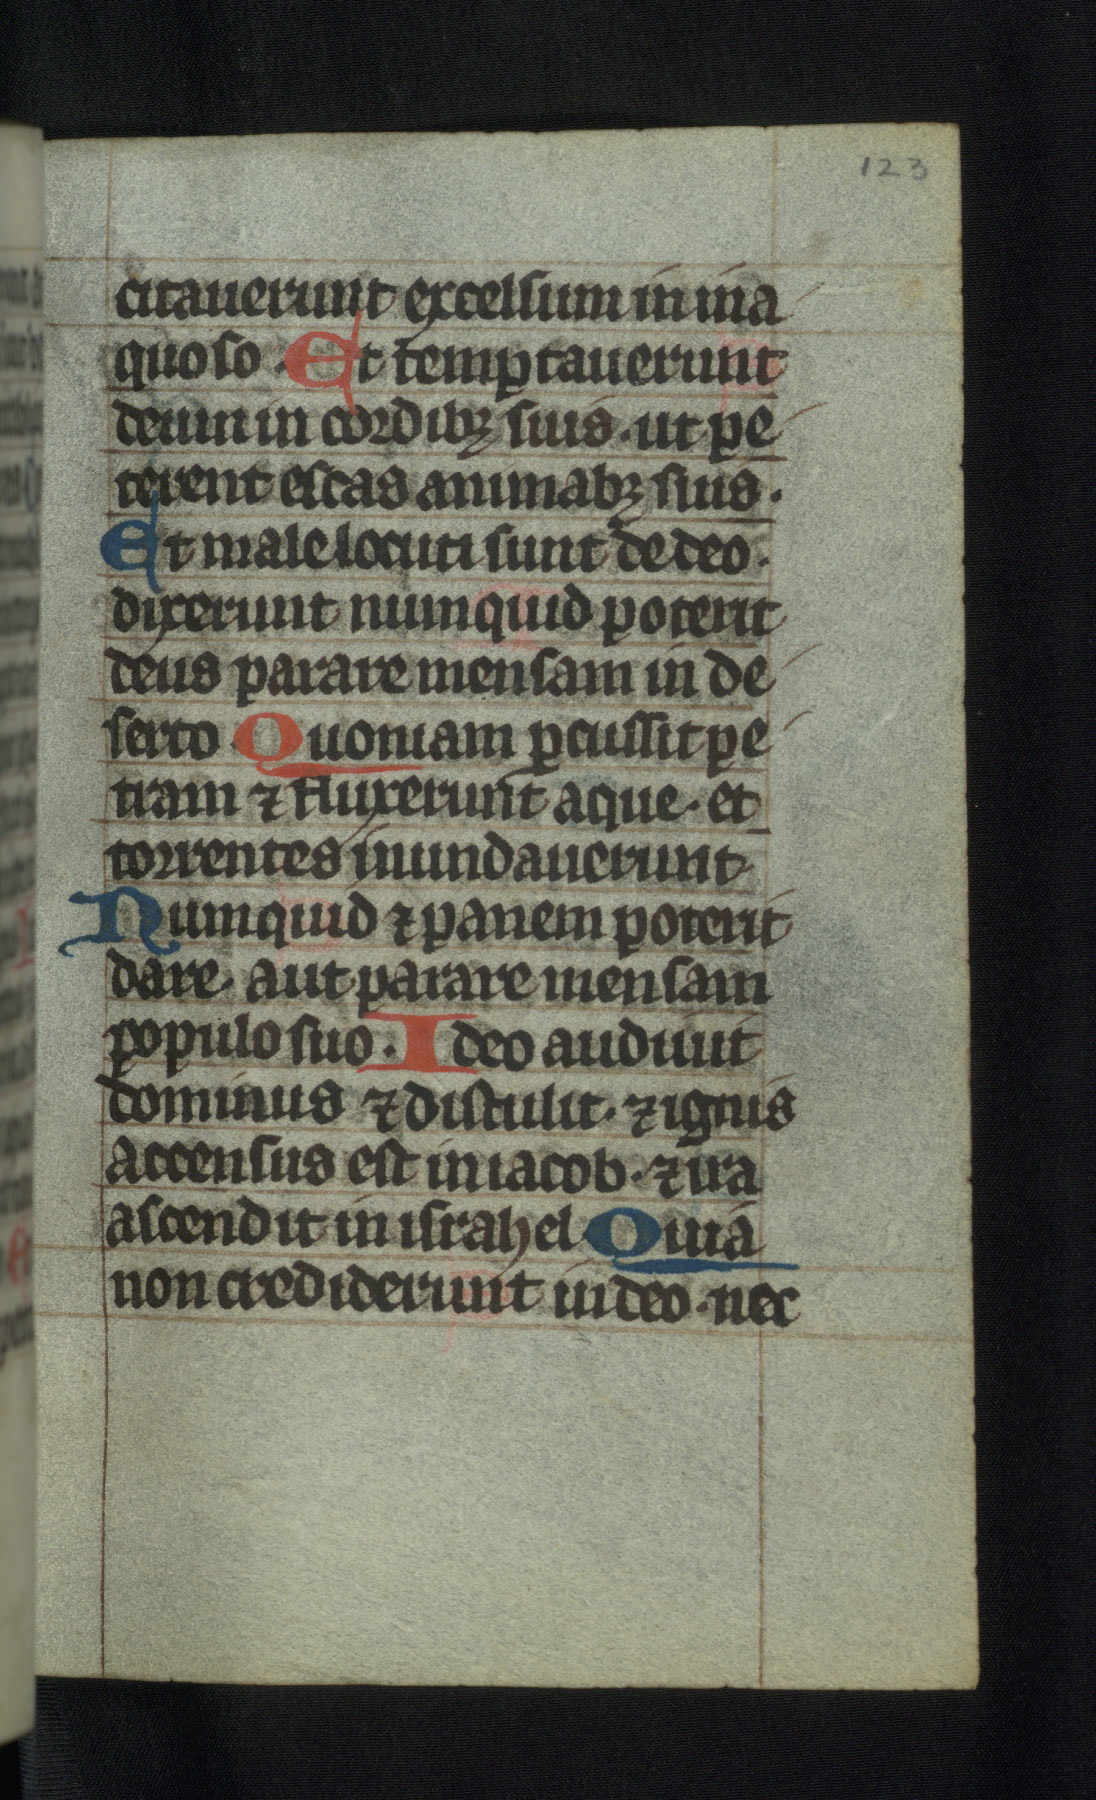 123
citauerunt excelsum in ina
quoso. Et temptauerunt
deum in cordibꝫ suis. ut pe
terent escas animabꝫ suis.
Et male locuti sunt de deo.
dixerunt numquid poterit
deus parare mensam in de
serto. Quoniam ꝑcussit pe
tram ⁊ fluxerunt aque. et
torrentes inundauerunt
Numquid ⁊ panem poterit
dare. aut parare mensam
populo suo. Ideo audiuit
dominus ⁊ distulit. ⁊ ignis
accensus est in iacob. ⁊ ira
ascendit in israhel. Quia
non crediderunt in deo. nec